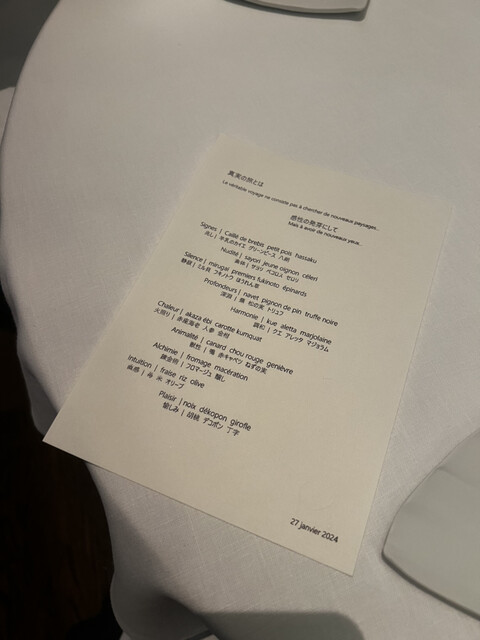 真実の旅とは
Le véritable voyage ne consiste pas à chercher de nouveaux paysages...
感性の発芽にして
Mais à avoir de nouveaux yeux...
Signes | Caillé de brebis petit pois hassaku
兆し | 羊乳のカイエ グリーンピース 八朔
Nudité | sayori jeune oignon céleri
サヨリ ペコロス セロリ
Silence | mirugai premiers fukinoto épinards
静寂 | ミル貝 フキノトウ ほうれん草
Profondeurs | navet pignon de pin truffe noire
深淵 | 蕪 松の実 トリュフ
Harmonie | kue aletta marjolaine
調和 | クエ アレッタ マジョラム
Chaleur | akaza ébi carotte kumquat
火照り | 赤座海老 人参 金柑
Animalité | canard chou rouge genièvre
獣性 | 鴨 赤キャベツ ねずの実
Alchimie | fromage macération
錬金術 | フロマージュ 醸し
Intuition | fraise riz olive
直感 | 苺 米 オリーブ
Plaisir | noix dékopon girofle
愉しみ | 胡桃 デコポン 丁字
27 janvier 2024